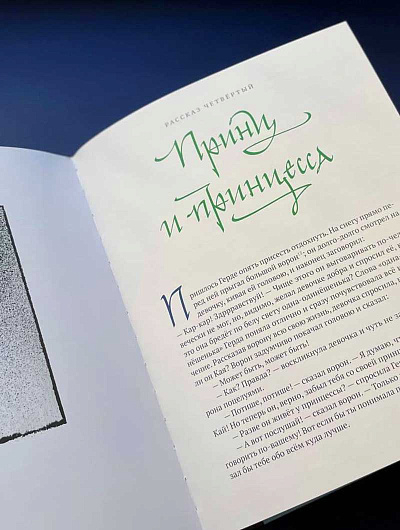 РАССКАЗ ЧЕТВЁРТЫЙ
Принц
и принцесса
Пришлось Герде опять присесть отдохнуть. На снегу прямо пе-
ред ней прыгал большой ворон; он долго-долго смотрел на
девочку, кивая ей головою, и наконец заговорил:
— Кар-кар! Здррравствуй! — Чище этого он выговаривать по-чело-
вечески не мог, но, видимо, желал девочке добра и спросил её, к
это она бредёт по белу свету одна-одинёшенька? Слова «одна-
нёшенька» Герда поняла отлично и сразу почувствовала всё и
чение. Рассказав ворону всю свою жизнь, девочка спросила,
ли он Кая? Ворон задумчиво покачал головою и сказал:
— Может быть, может быть!
— Как? Правда? — воскликнула девочка и чуть не за
рона поцелуями.
— Потише, потише! — сказал ворон. — Я думаю, чт
Кай! Но теперь он, верно, забыл тебя со своей принц
— Разве он живёт у принцессы? — спросила Ге
— А вот послушай! — сказал ворон. — Только
говорить по-вашему! Вот если бы ты понимала п
зал бы тебе обо всём куда лучше.